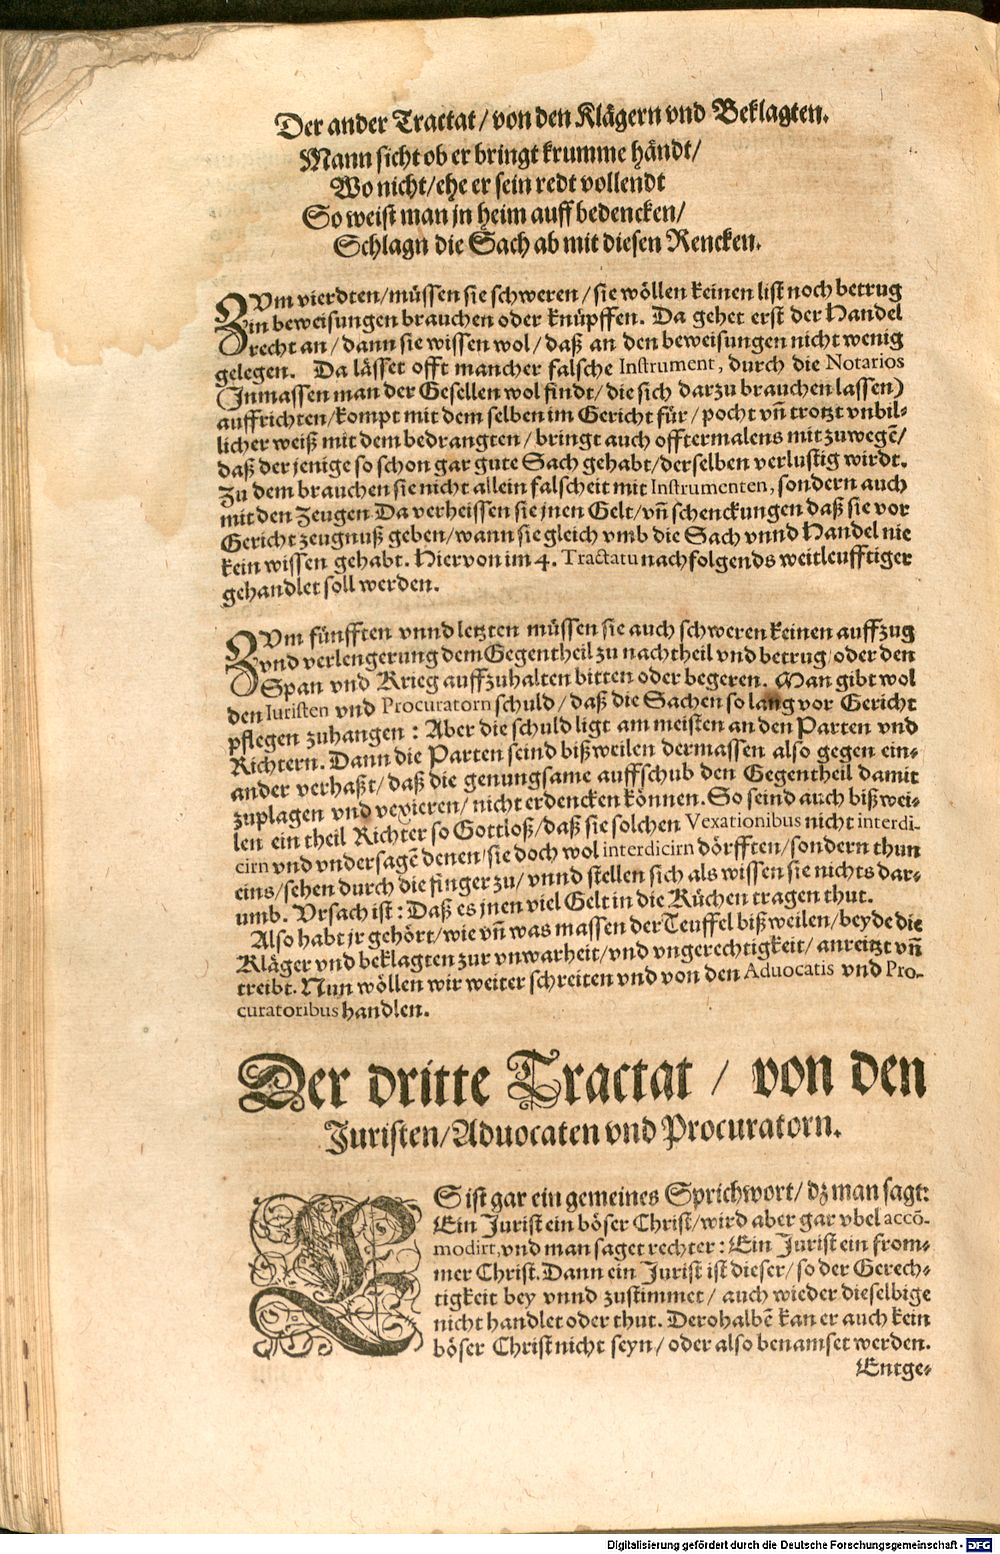 Der ander Tractat / von den Klägern vnd Beklagten.
Mann sicht ob er bringt krumme händt/
Wo nicht/ehe er sein redt vollendt
So weist man jn heim auff bedencken/
Schlagn die Sach ab mit diesen Rencken.
ZVm vierdten/müssen sie schweren / sie wöllen keinen list noch betrug
in beweisungen brauchen oder knüpffen. Da gehet erst der Handel
recht an / dann sie wissen wol / daß an den beweisungen nicht wenig
gelegen. Da lässet offt mancher falsche Instrument, durch die Notarios
(Inmassen man der Gesellen wol findt / die sich darzu brauchen lassen)
auffrichten/kompt mit dem selben im Gericht für / pocht vñ trotzt vnbil-
licher weiß mit dem bedrangten / bringt auch offtermalens mit zuwegẽ/
daß der jenige so schon gar gute Sach gehabt/derselben verlustig wirdt.
Zu dem brauchen sie nicht allein falscheit mit Instrumenten, sondern auch
mit den Zeugen Da verheissen sie jnen Gelt/vñ schenckungen daß sie vor
Gericht zeugnuß geben/wann sie gleich vmb die Sach vnnd Handel nie
kein wissen gehabt. Hiervon im 4. Tractatu nachfolgends weitleufftiger
gehandlet soll werden.
ZVm fünfften vnnd letzten müssen sie auch schweren keinen auffzug
vnd verlengerung dem Gegentheil zu nachtheil vnd betrug/oder den
Span vnd Krieg auffzuhalten bitten oder begeren. Man gibt wol
den Iuristen vnd Procuratorn schuld / daß die Sachen so lang vor Gericht
pflegen zuhangen : Aber die schuld ligt am meisten an den Parten vnd
Richtern. Dann die Parten seind bißweilen dermassen also gegen ein-
ander verhaßt/ daß die genungsame auffschub den Gegentheil damit
zuplagen vnd vexieren/ nicht erdencken können. So seind auch bißwei-
len ein theil Richter so Gottloß/daß sie solchen Vexationibus nicht interdi-
cirn vnd vndersagẽ denen/sie doch wol interdicirn dörfften/sondern thun
eins/sehen durch die finger zu/ vnnd stellen sich als wissen sie nichts dar-
umb. Vrsach ist : Daß es jnen viel Gelt in die Küchen tragen thut.
Also habt jr gehört/wie vñ was massen der Teuffel bißweilen/beyde die
Kläger vnd beklagten zur vnwarheit/vnd vngerechtigkeit/ anreitzt vñ
treibt. Nun wöllen wir weiter schreiten vnd von den Aduocatis vnd Pro-
curatoribus handlen.
Der dritte Tractat / von den
Juristen/Aduocaten vnd Procuratorn.
ES ist gar ein gemeines Sprichwort/ dz man sagt:
Ein Jurist ein böser Christ/wird aber gar vbel accõ-
modirt,vnd man saget rechter : Ein Jurist ein from-
mer Christ. Dann ein Jurist ist dieser/ so der Gerech-
tigkeit bey vnnd zustimmet / auch wieder dieselbige
nicht handlet oder thut. Derohalbẽ kan er auch kein
böser Christ nicht seyn / oder also benamset werden.
Entge-
Digitalisierung gefördert durch die Deutsche Forschungsgemeinschaft - DFG